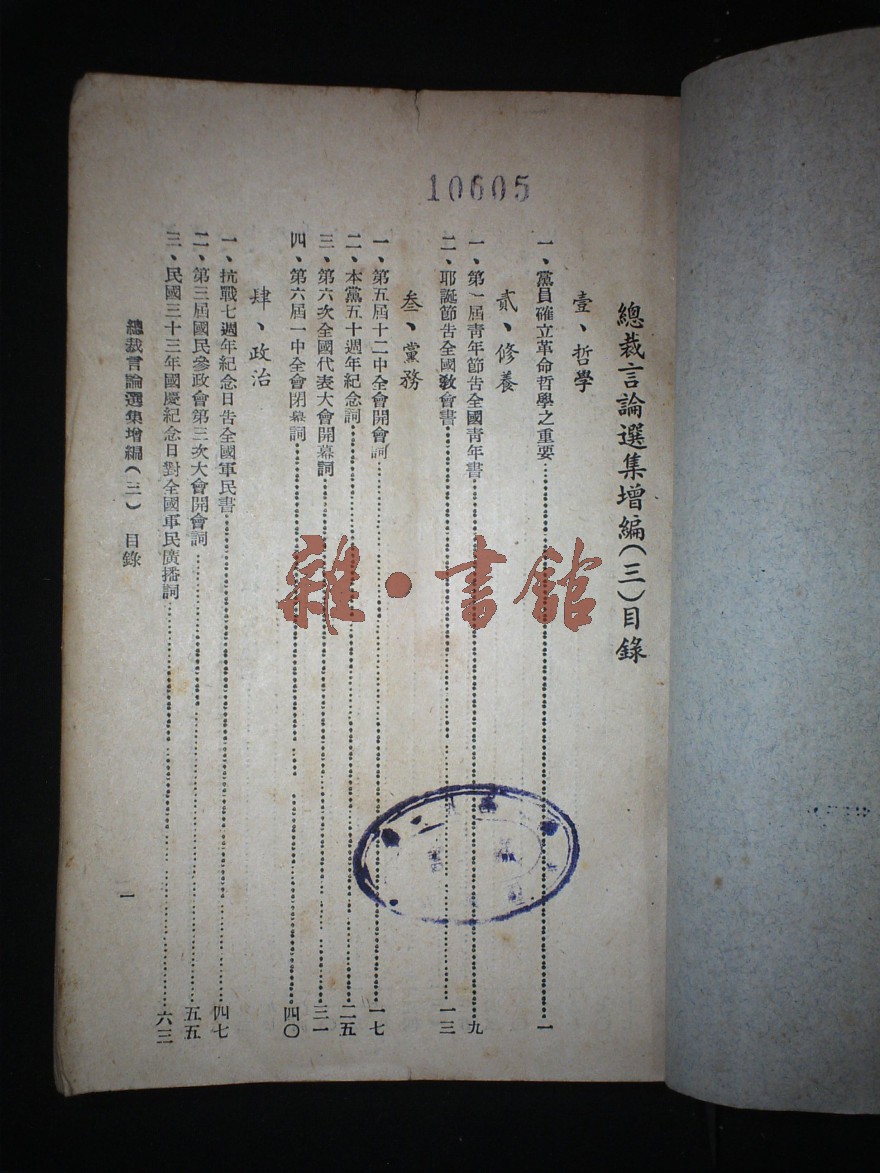 10605
總裁言論選集增編(三)目錄
壹、哲學
一、黨員確立革命哲學之重要 一
貳、修養
一、第一屆青年節告全國青年書 九
二、耶誕節告全國教會書 一三
叁、黨務
一、第五屆十二中全會開會詞 一七
二、本黨五十週年紀念詞 二五
三、第六次全國代表大會開幕詞 三一
四、第六屆一中全會閉幕詞 四〇
肆、政治
一、抗戰七週年紀念日告全國軍民書 四七
二、第三屆國民參政會第三次大會開會詞 五五
三、民國三十三年國慶紀念日對全國軍民廣播詞 六三
總裁言論選集增編(三) 目錄
一
雜·書館